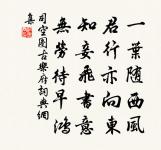 一葉隨西風
君行亦向東
知妾飛書意
無勞待早鴻
司空圖古樂府詞典網
集